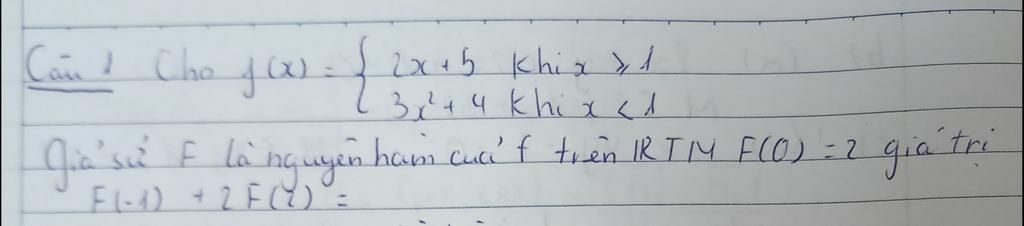 Câu 1 Cho f(x) = { 2x+5 khi x ⩾ 1
3x²+4 khi x < 1
Giả sử F là nguyên hàm của f trên IR TM F(0) = 2 giá trị
F(-1) + 2F(2) =